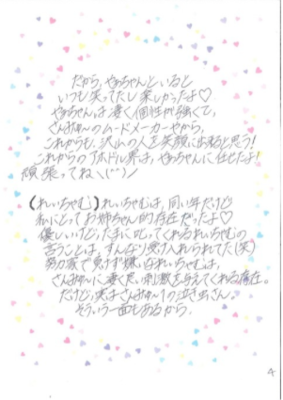 だから、やあちゃんといると
いつも笑ってたし楽しかったよ♡
やあちゃんは凄く個性が強くて、
さんみゅ〜のムードメーカーやから、
これからも、沢山の人を笑顔に出来ると思う!
これからのアホドル界は、やあちゃんに任せたよ!
頑張ってねヽ(^^)ノ
(れいちゃむ)れいちゃむは、同い年だけど
私にとってお姉ちゃん的存在だったよ♡
優しいけど、たまに叱ってくれるれいちゃむの
言うことは、すんなり受け入れられてた(笑)
努力家で負けず嫌いなれいちゃむは、
さんみゅ〜に凄く良い刺激を与えてくれる存在。
だけど、実はさんみゅ〜1の泣き虫さん。
そういう一面もあるから、
4